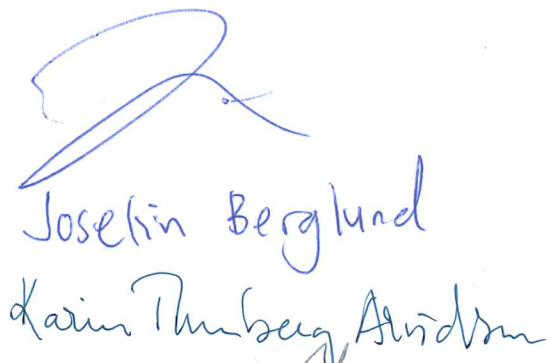 Joselin Berglund
Karin Thunberg Arvidsson